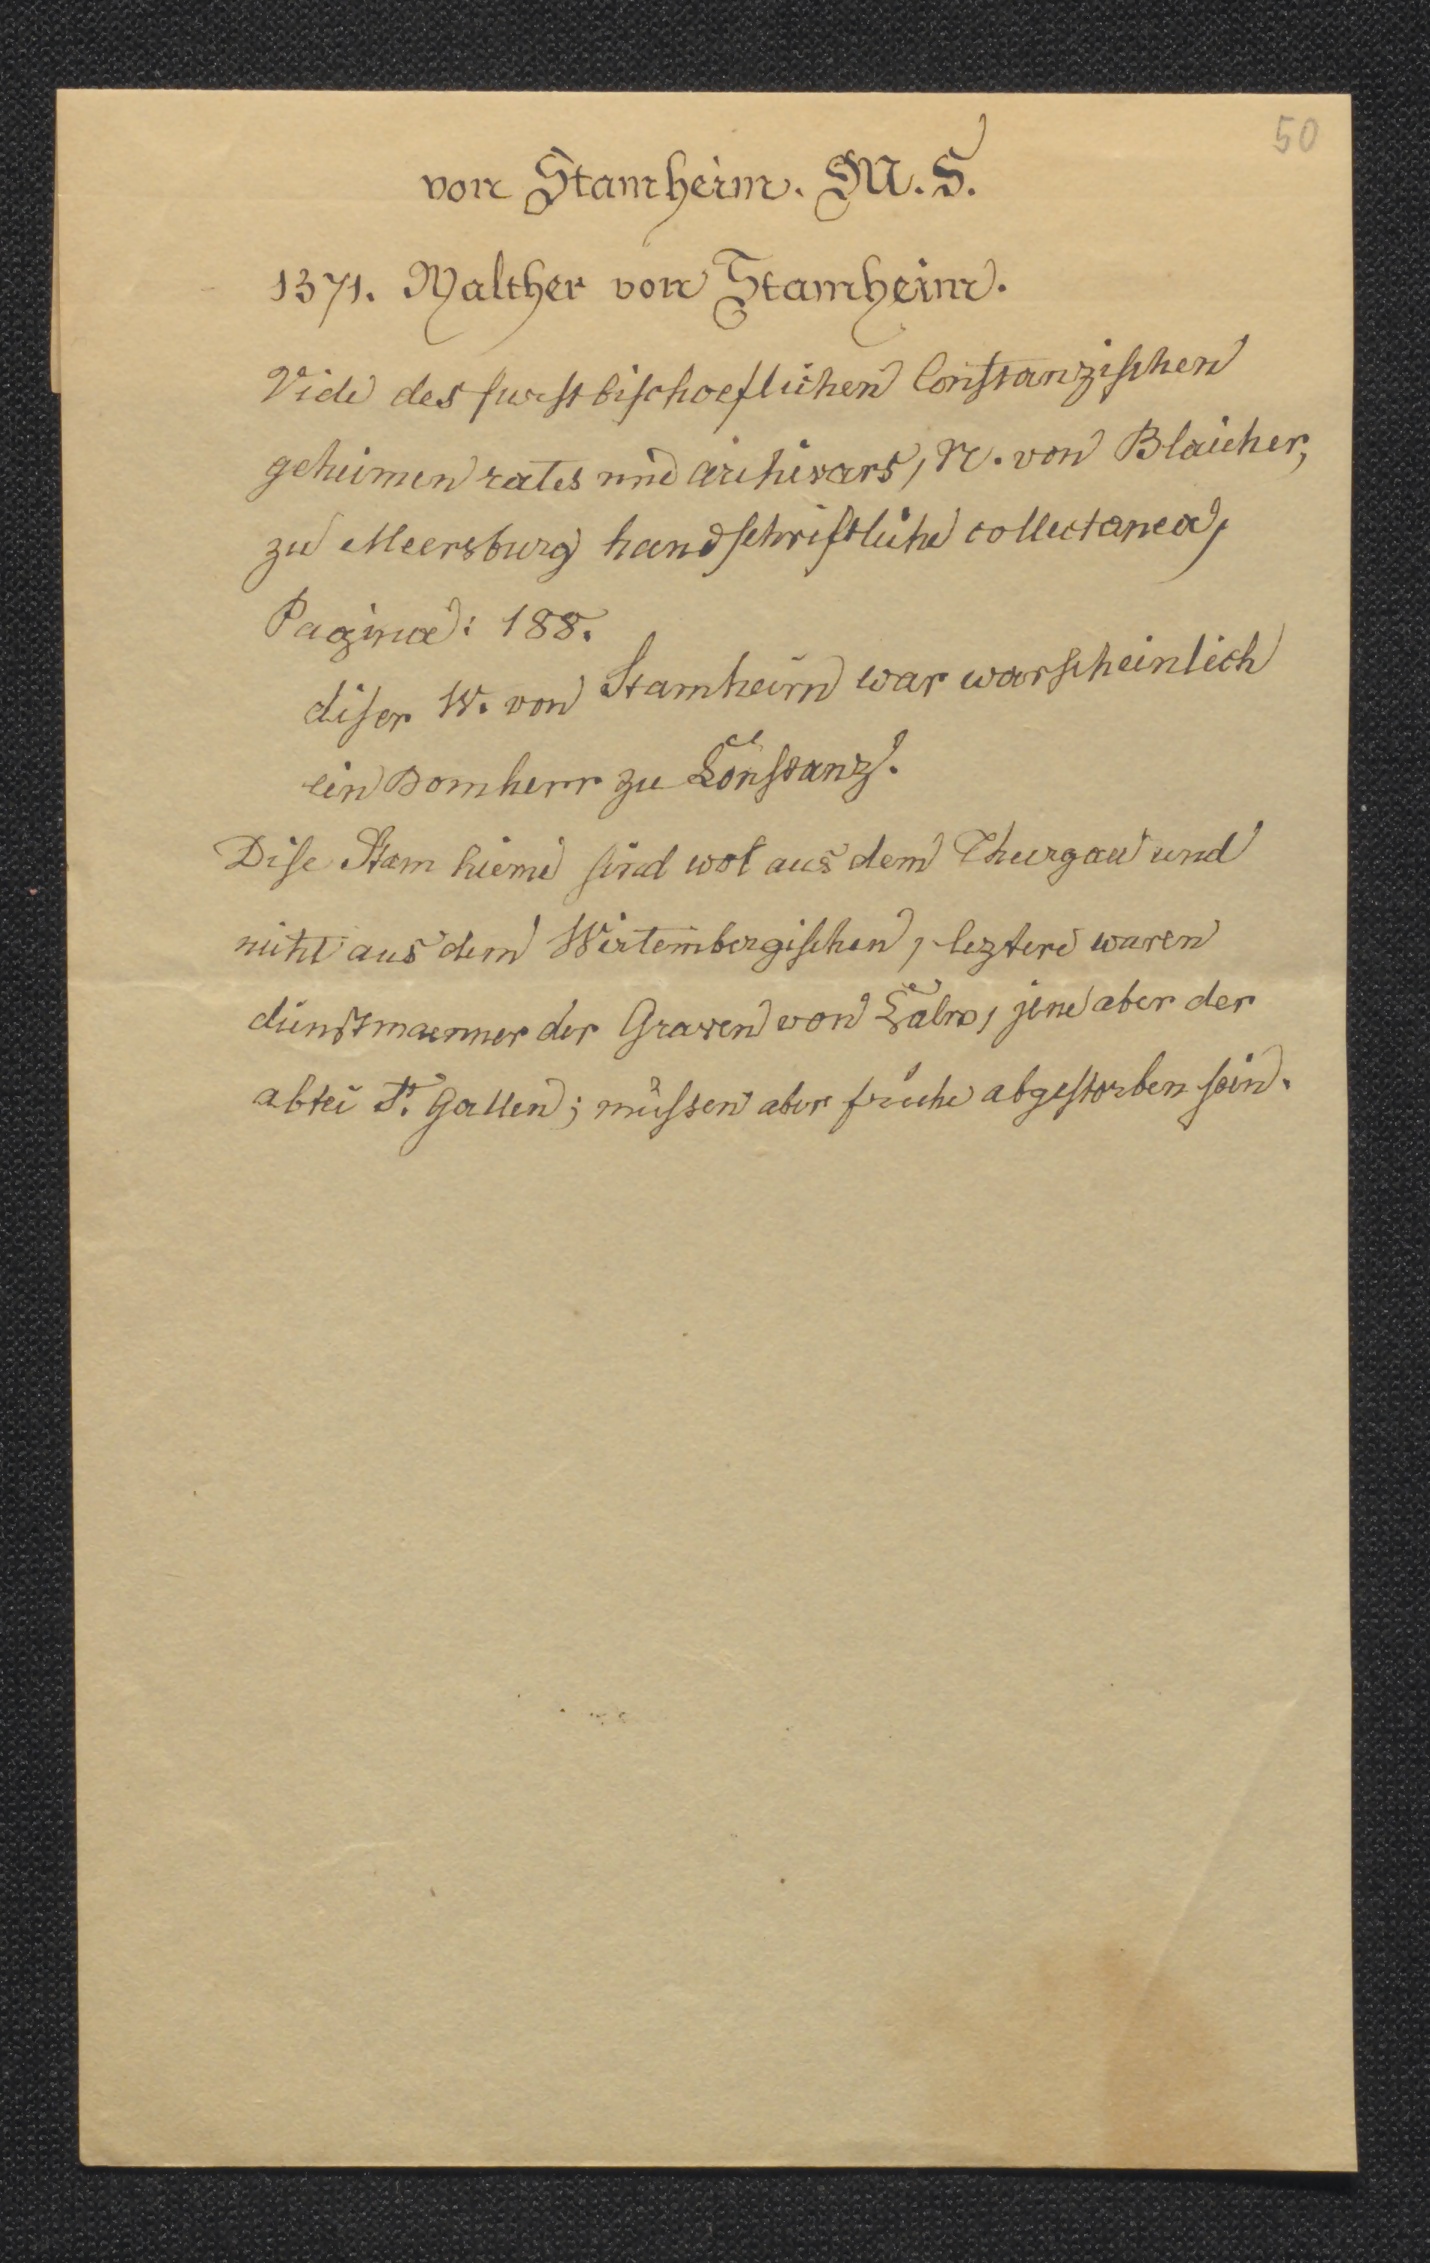 50
von Stamheim. M. S.
1371. Walther von Stamheim.
Vide des furstbischoeflichen Constanzischen
geheimen rates und archivars, N. von Blaicher,
zu Meersburg handschriftliche collectanea,
Pagina: 188.
diser W. von Stamheim war warscheinlich
ein Domherr zu Constanz.
Dise Stamheime sind wol aus dem Thurgau und
nicht aus dem Wirtembergischen, leztere waren
dienstmaenner der Graven von Calw, jene aber der
abtei St. Gallen; müssen aber früehe abgestorben sein.